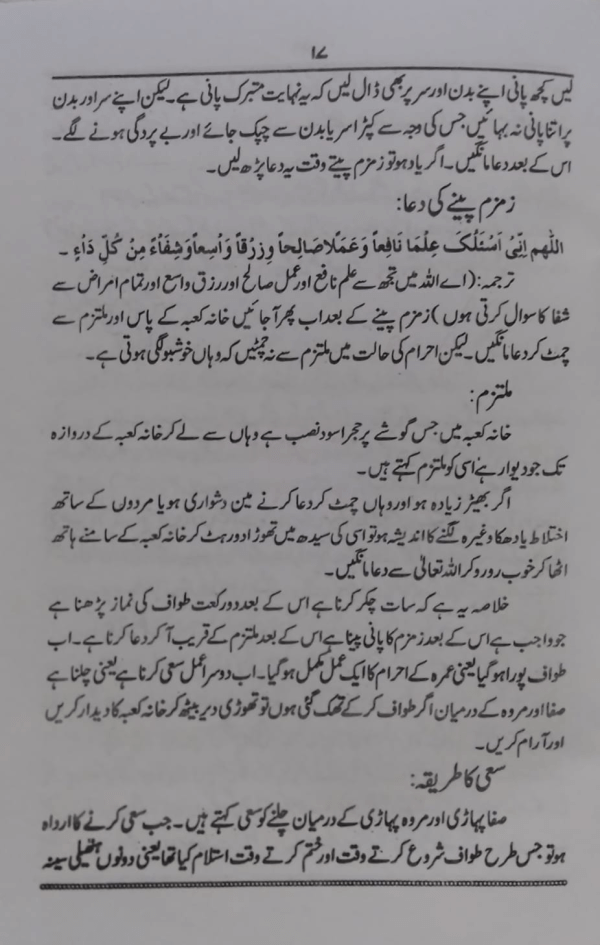 ۱۷
لیں کچھ پانی اپنے بدن اور سر پر بھی ڈال لیں کہ یہ نہایت متبرک پانی ہے۔ لیکن اپنے سر اور بدن
پر اتنا پانی نہ بہائیں جس کی وجہ سے کپڑا سر یا بدن سے چپک جائے اور بے پردگی ہونے لگے۔
اس کے بعد دعا مانگیں۔ اگر یاد ہو تو زمزم پیتے وقت یہ دعا پڑھ لیں۔
زمزم پینے کی دعا:
اللّٰھم اِنِّیْ اَسْئَلُکَ عِلْمًا نَافِعاً وَعَمَلًا صَالِحاً وِرِزْقاً وَاسِعاً وَشِفَاءً مِنْ کُلِّ دَاءٍ ۔
ترجمہ: (اے اللہ میں تجھ سے علم نافع اور عمل صالح اور رزق واسع اور تمام امراض سے
شفا کا سوال کرتی ہوں) زمزم پینے کے بعد اب پھر آ جائیں خانہ کعبہ کے پاس اور ملتزم سے
چمٹ کر دعا مانگیں۔ لیکن احرام کی حالت میں ملتزم سے نہ چمٹیں کہ وہاں خوشبو لگی ہوتی ہے۔
ملتزم:
خانہ کعبہ میں جس گوشے پر حجر اسود نصب ہے وہاں سے لے کر خانہ کعبہ کے دروازہ
تک جو دیوار ہے اسی کو ملتزم کہتے ہیں۔
اگر بھیڑ زیادہ ہو اور وہاں چمٹ کر دعا کرنے مین دشواری ہو یا مردوں کے ساتھ
اختلاط یا دھکا وغیرہ لگنے کا اندیشہ ہو تو اسی کی سیدھ میں تھوڑا دور ہٹ کر خانہ کعبہ کے سامنے ہاتھ
اٹھا کر خوب رو رو کر اللہ تعالیٰ سے دعا مانگیں۔
خلاصہ یہ ہے کہ سات چکر کرنا ہے اس کے بعد دو رکعت طواف کی نماز پڑھنا ہے
جو واجب ہے اس کے بعد زمزم کا پانی پینا ہے اس کے بعد ملتزم کے قریب آ کر دعا کرنا ہے۔ اب
طواف پورا ہو گیا یعنی عمرہ کے احرام کا ایک عمل مکمل ہو گیا۔ اب دوسرا عمل سعی کرنا ہے یعنی چلنا ہے
صفا اور مروہ کے درمیان اگر طواف کر کے تھک گئی ہوں تو تھوڑی دیر بیٹھ کر خانہ کعبہ کا دیدار کریں
اور آرام کریں۔
سعی کا طریقہ:
صفا پہاڑی اور مروہ پہاڑی کے درمیان چلنے کو سعی کہتے ہیں۔ جب سعی کرنے کا ارداہ
ہو تو جس طرح طواف شروع کرتے وقت اور ختم کرتے وقت استلام کیا تھا یعنی دونوں ہتھیلی سینہ